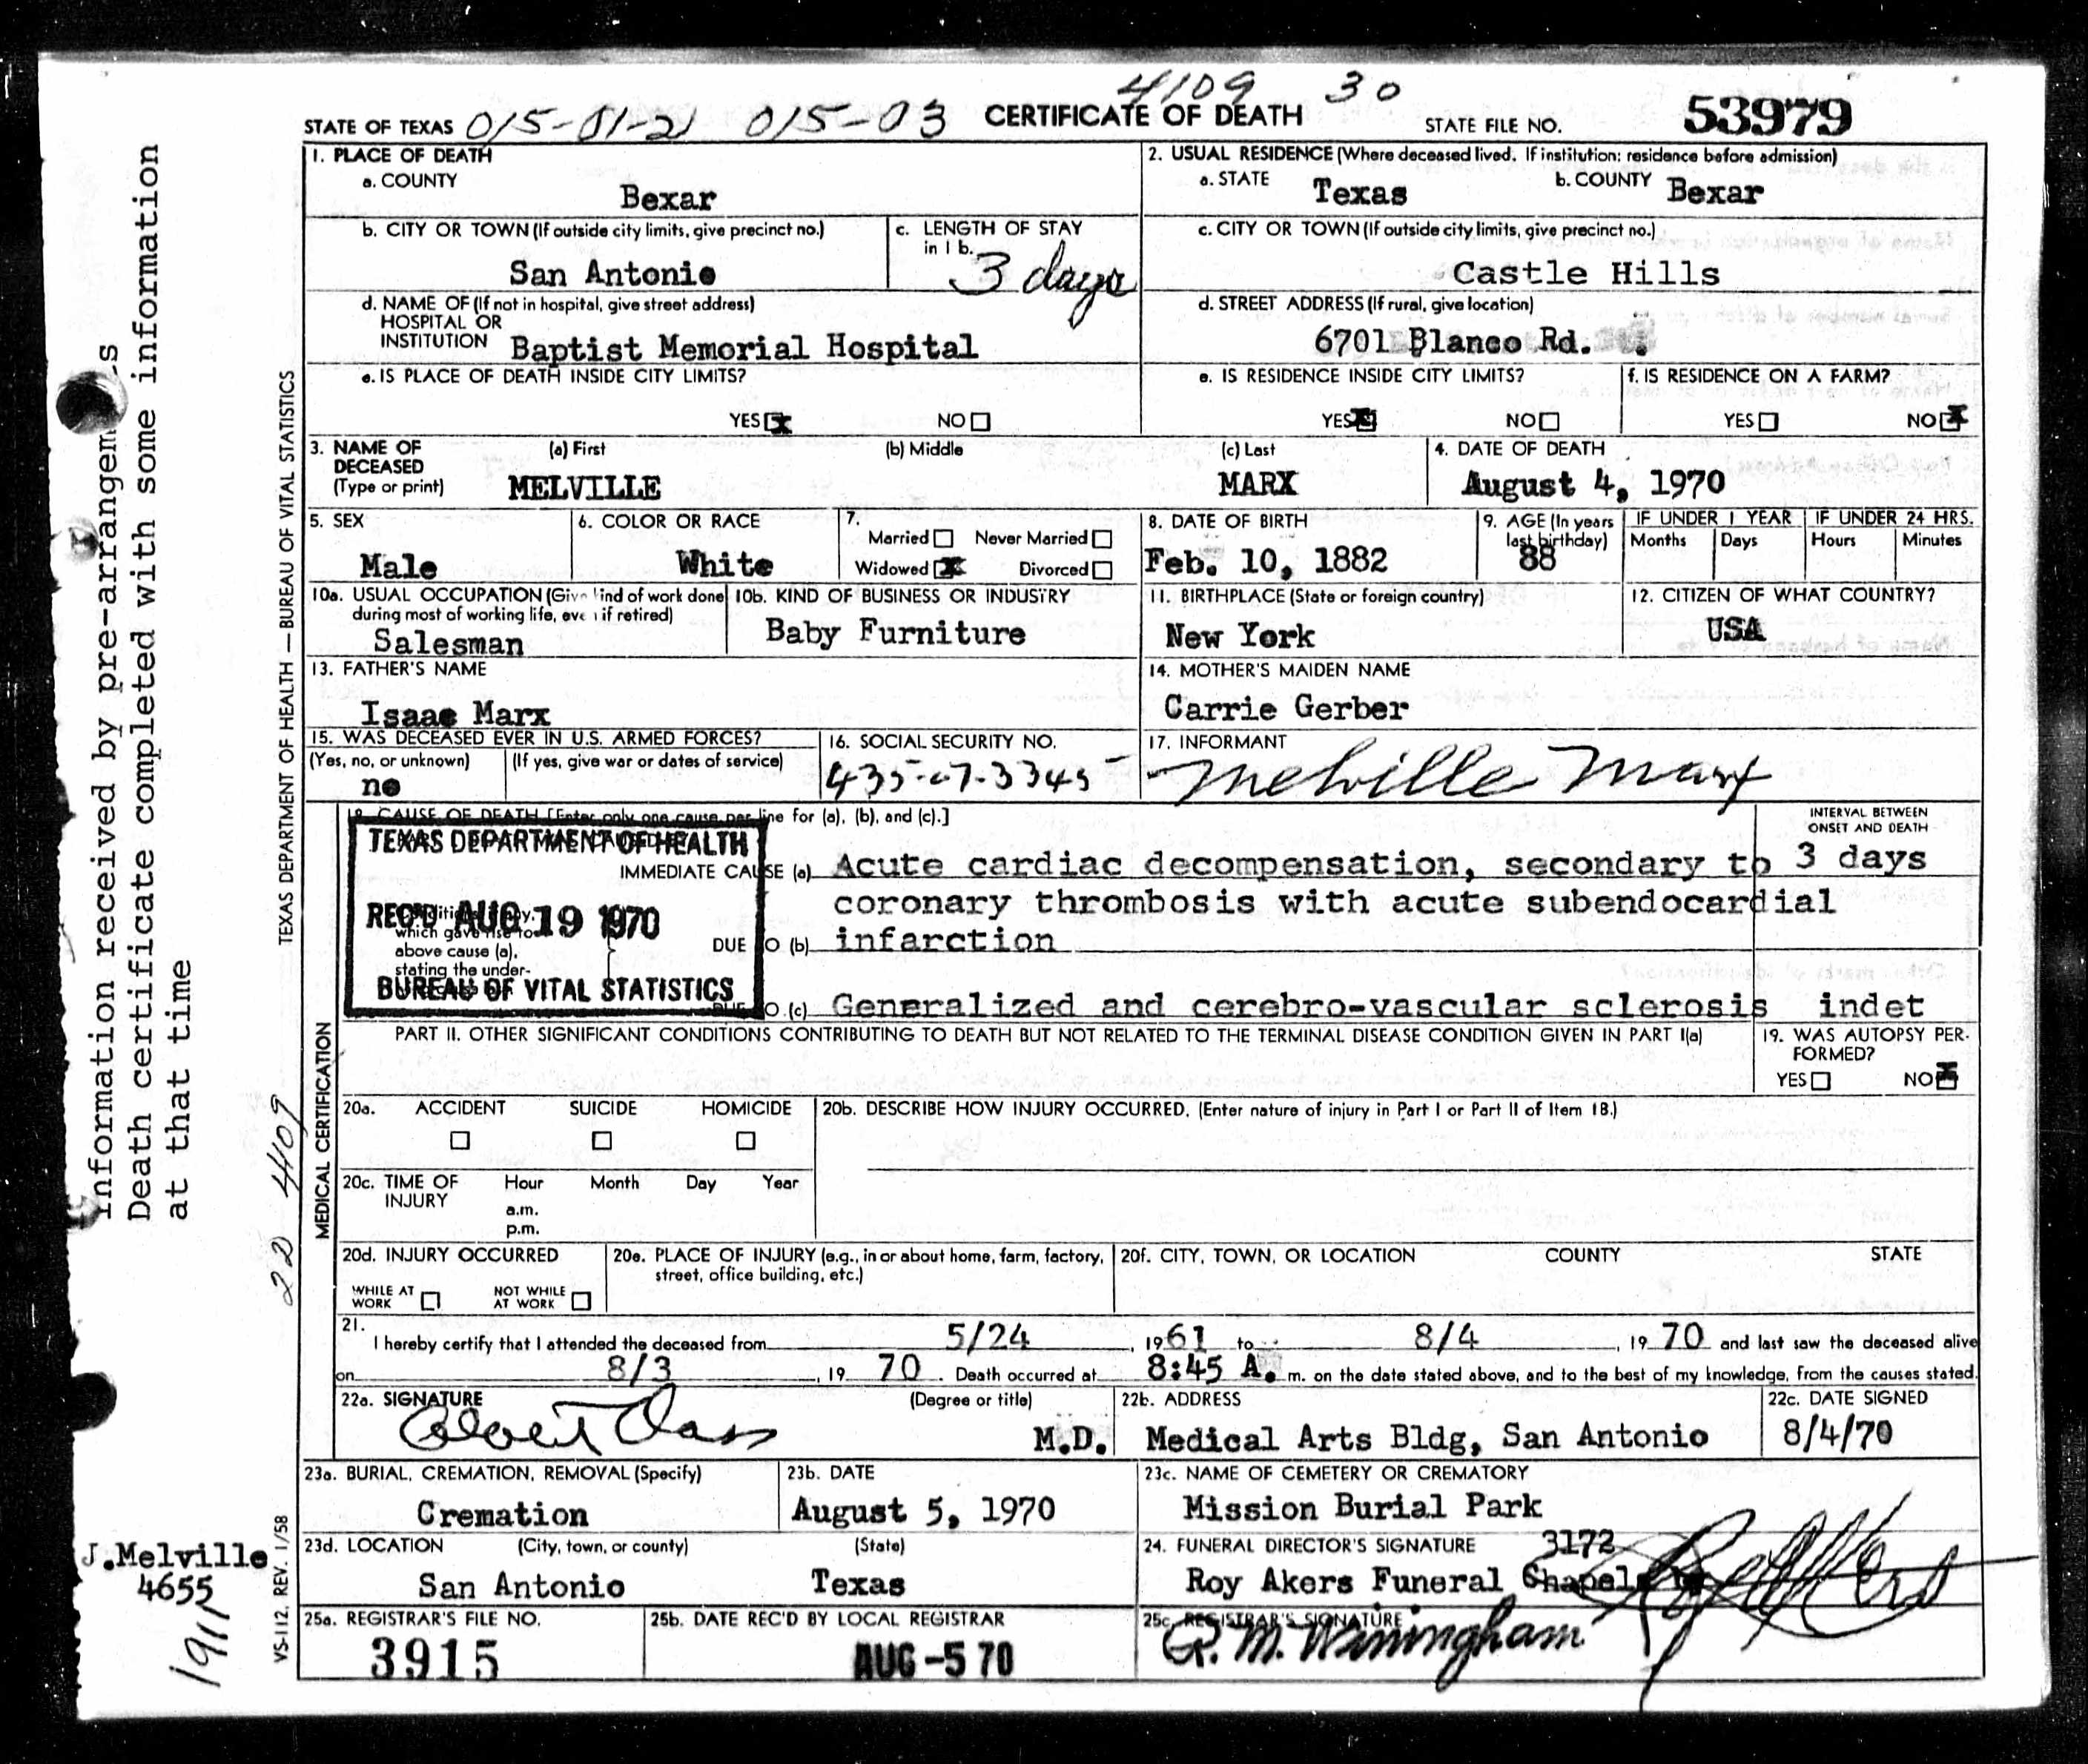 4109 30
STATE OF TEXAS 015-01-21 015-03 CERTIFICATE OF DEATH STATE FILE NO. 53979
1. PLACE OF DEATH
a. COUNTY
Bexar
b. CITY OR TOWN (If outside city limits, give precinct no.)
San Antonio
c. LENGTH OF STAY
in 1 b.
3 days
d. NAME OF (If not in hospital, give street address)
HOSPITAL OR
INSTITUTION Baptist Memorial Hospital
e. IS PLACE OF DEATH INSIDE CITY LIMITS?
YES NO
2. USUAL RESIDENCE (Where deceased lived. If institution: residence before admission)
a. STATE Texas b. COUNTY Bexar
c. CITY OR TOWN (If outside city limits, give precinct no.)
Castle Hills
d. STREET ADDRESS (If rural, give location)
6701 Blanco Rd.
e. IS RESIDENCE INSIDE CITY LIMITS?
YES NO
f. IS RESIDENCE ON A FARM?
YES NO
3. NAME OF
DECEASED
(Type or print)
(a) First (b) Middle (c) Last
MELVILLE MARX
4. DATE OF DEATH
August 4, 1970
5. SEX
Male
6. COLOR OR RACE
White
7.
Married Never Married
Widowed Divorced
8. DATE OF BIRTH
Feb. 10, 1882
9. AGE (In years
last birthday)
88
IF UNDER 1 YEAR
Months Days
IF UNDER 24 HRS.
Hours Minutes
10a. USUAL OCCUPATION (Give kind of work done
during most of working life, even if retired)
Salesman
10b. KIND OF BUSINESS OR INDUSTRY
Baby Furniture
11. BIRTHPLACE (State or foreign country)
New York
12. CITIZEN OF WHAT COUNTRY?
USA
13. FATHER'S NAME
Isaac Marx
14. MOTHER'S MAIDEN NAME
Carrie Gerber
15. WAS DECEASED EVER IN U.S. ARMED FORCES?
(Yes, no, or unknown) (If yes, give war or dates of service)
no
16. SOCIAL SECURITY NO.
435-07-3345
17. INFORMANT
Melville Marx
18. CAUSE OF DEATH [Enter only one cause per line for (a), (b), and (c).]
INTERVAL BETWEEN
ONSET AND DEATH
TEXAS DEPARTMENT OF HEALTH
REC'D AUG 19 1970
BUREAU OF VITAL STATISTICS
IMMEDIATE CAUSE (a) Acute cardiac decompensation, secondary to 3 days
coronary thrombosis with acute subendocardial
which gave rise to
above cause (a),
stating the under-
DUE TO (b) infarction
DUE TO (c) Generalized and cerebro-vascular sclerosis indet
PART II. OTHER SIGNIFICANT CONDITIONS CONTRIBUTING TO DEATH BUT NOT RELATED TO THE TERMINAL DISEASE CONDITION GIVEN IN PART I(a)
19. WAS AUTOPSY PER-
FORMED?
YES NO
20a. ACCIDENT SUICIDE HOMICIDE
20b. DESCRIBE HOW INJURY OCCURRED. (Enter nature of injury in Part I or Part II of Item 18.)
20c. TIME OF
INJURY
Hour Month Day Year
a.m.
p.m.
20d. INJURY OCCURRED
WHILE AT
WORK
NOT WHILE
AT WORK
20e. PLACE OF INJURY (e.g., in or about home, farm, factory,
street, office building, etc.)
20f. CITY, TOWN, OR LOCATION COUNTY STATE
21.
I hereby certify that I attended the deceased from 5/24, 1961 to 8/4, 1970 and last saw the deceased alive
on 8/3, 19 70. Death occurred at 8:45 A. m. on the date stated above, and to the best of my knowledge, from the causes stated.
22a. SIGNATURE (Degree or title)
M.D.
22b. ADDRESS
Medical Arts Bldg, San Antonio
22c. DATE SIGNED
8/4/70
23a. BURIAL, CREMATION, REMOVAL (Specify)
Cremation
23b. DATE
August 5, 1970
23c. NAME OF CEMETERY OR CREMATORY
Mission Burial Park
23d. LOCATION (City, town, or county) (State)
San Antonio Texas
24. FUNERAL DIRECTOR'S SIGNATURE 3172
Roy Akers Funeral Chapels
25a. REGISTRAR'S FILE NO.
3915
25b. DATE REC'D BY LOCAL REGISTRAR
AUG -5 70
25c. REGISTRAR'S SIGNATURE
MEDICAL CERTIFICATION
TEXAS DEPARTMENT OF HEALTH — BUREAU OF VITAL STATISTICS
VS-112, REV. 1/58
22 4109
Information received by pre-arrangem s
Death certificate completed with some information
at that time
J.Melville
4655
1911